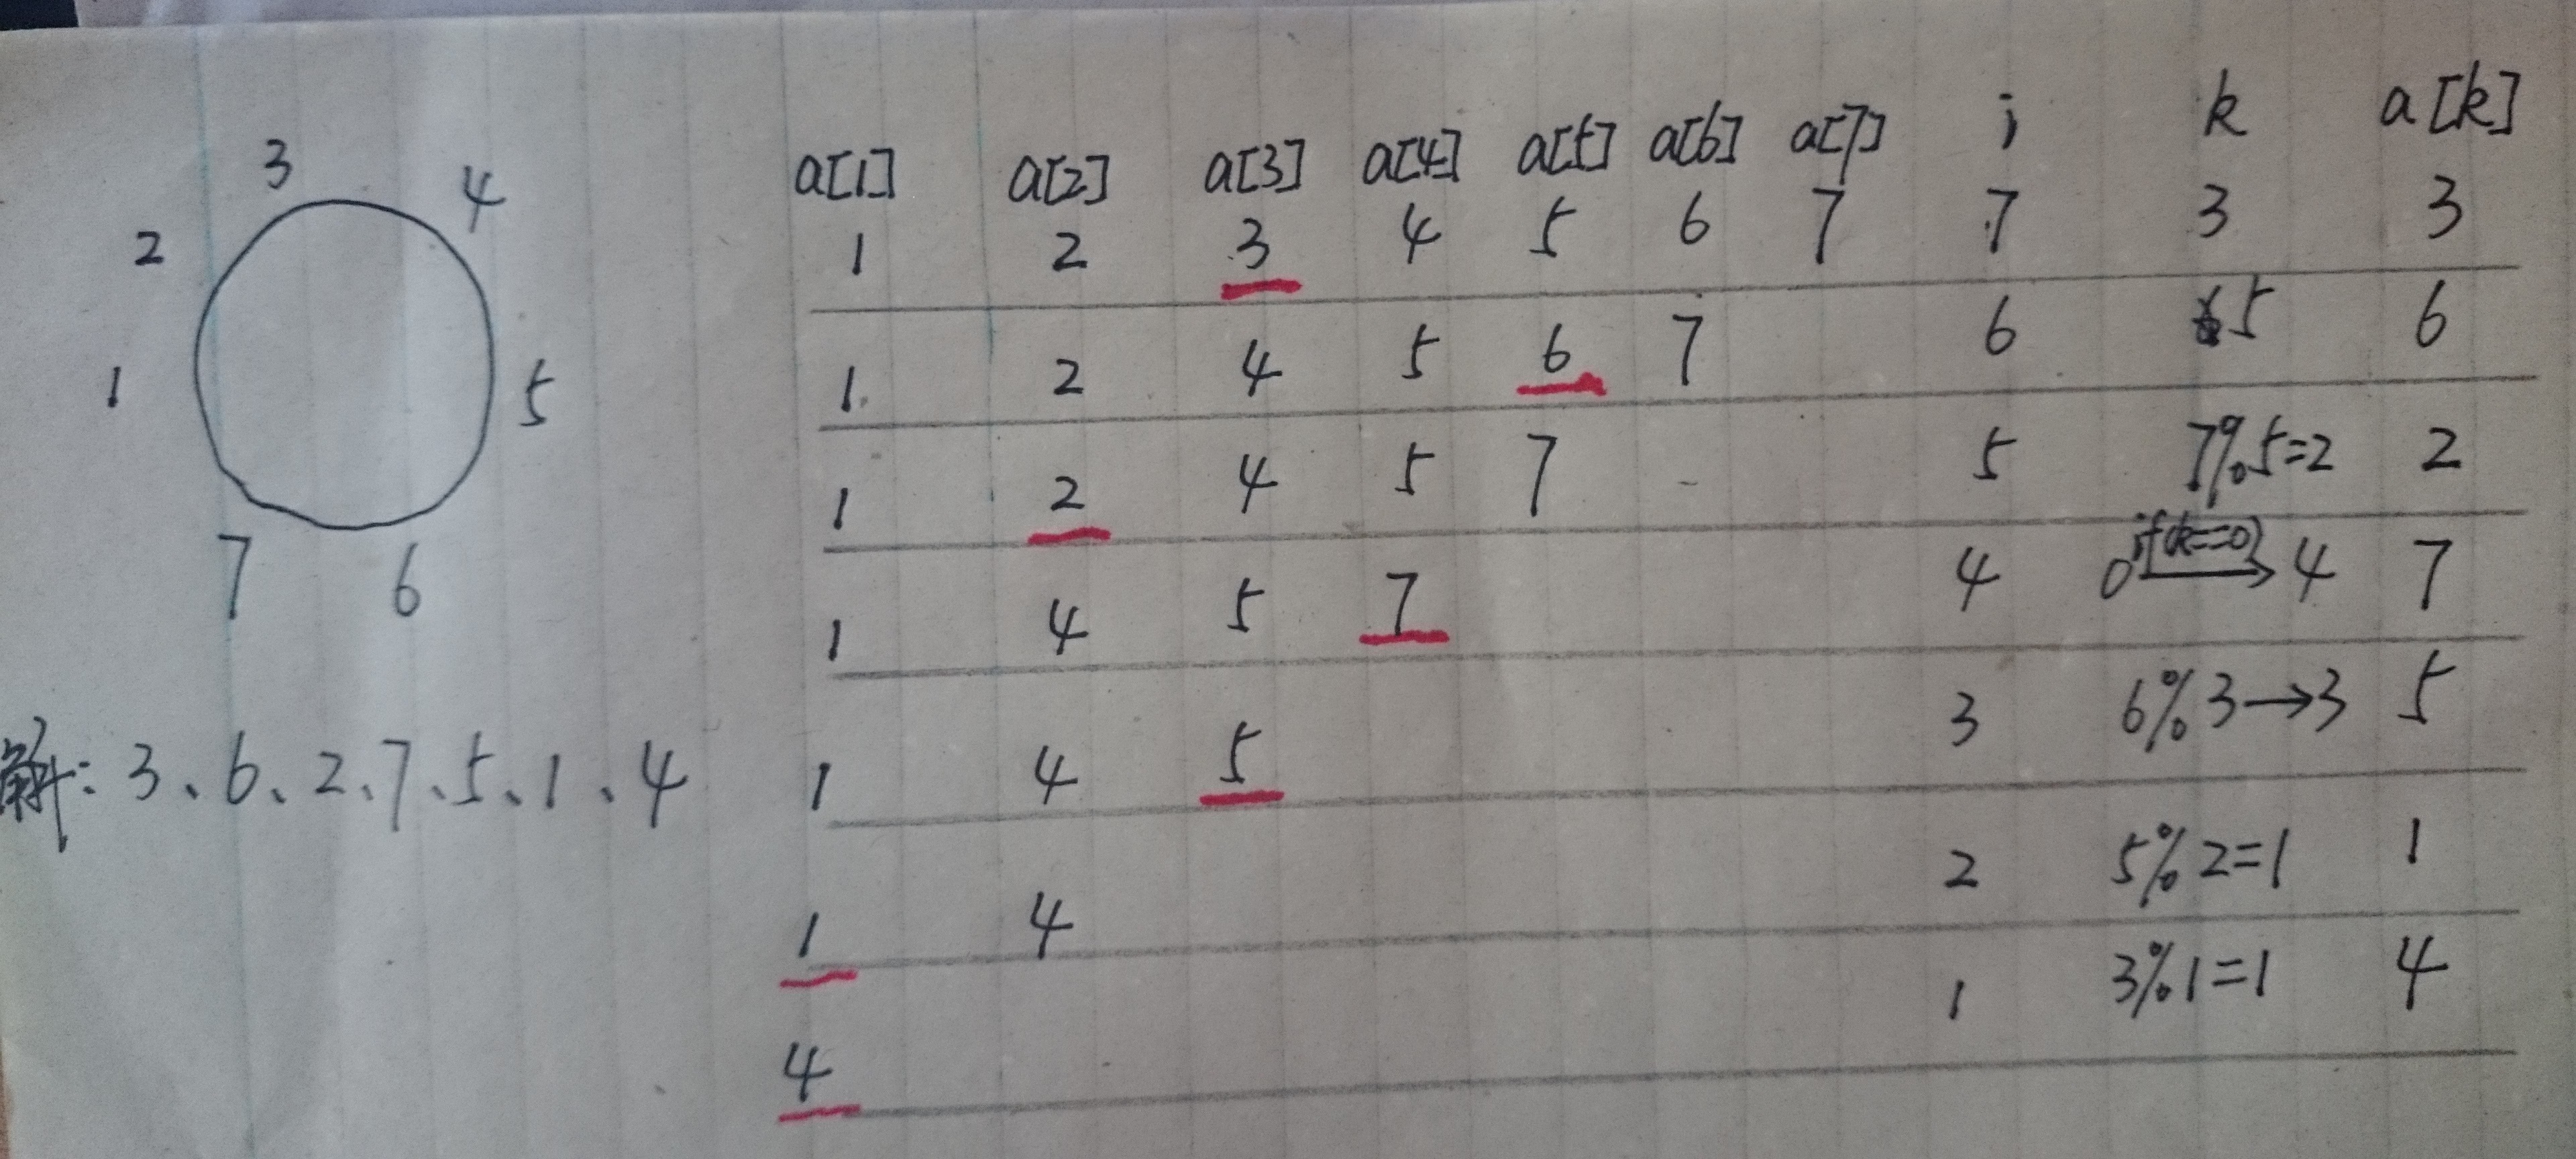 3
4
2
1
5
7 6
解: 3、6、2、7、5、1、4
a[1] a[2] a[3] a[4] a[5] a[6] a[7] i k a[k]
1 2 3 4 5 6 7 7 3 3
1 2 4 5 6 7 6 5 6
1 2 4 5 7 5 7%5=2 2
if(k==0)
1 4 5 7 4 0→4 7
1 4 5 3 6%3→3 5
1 4 2 5%2=1 1
4 1 3%1=1 4